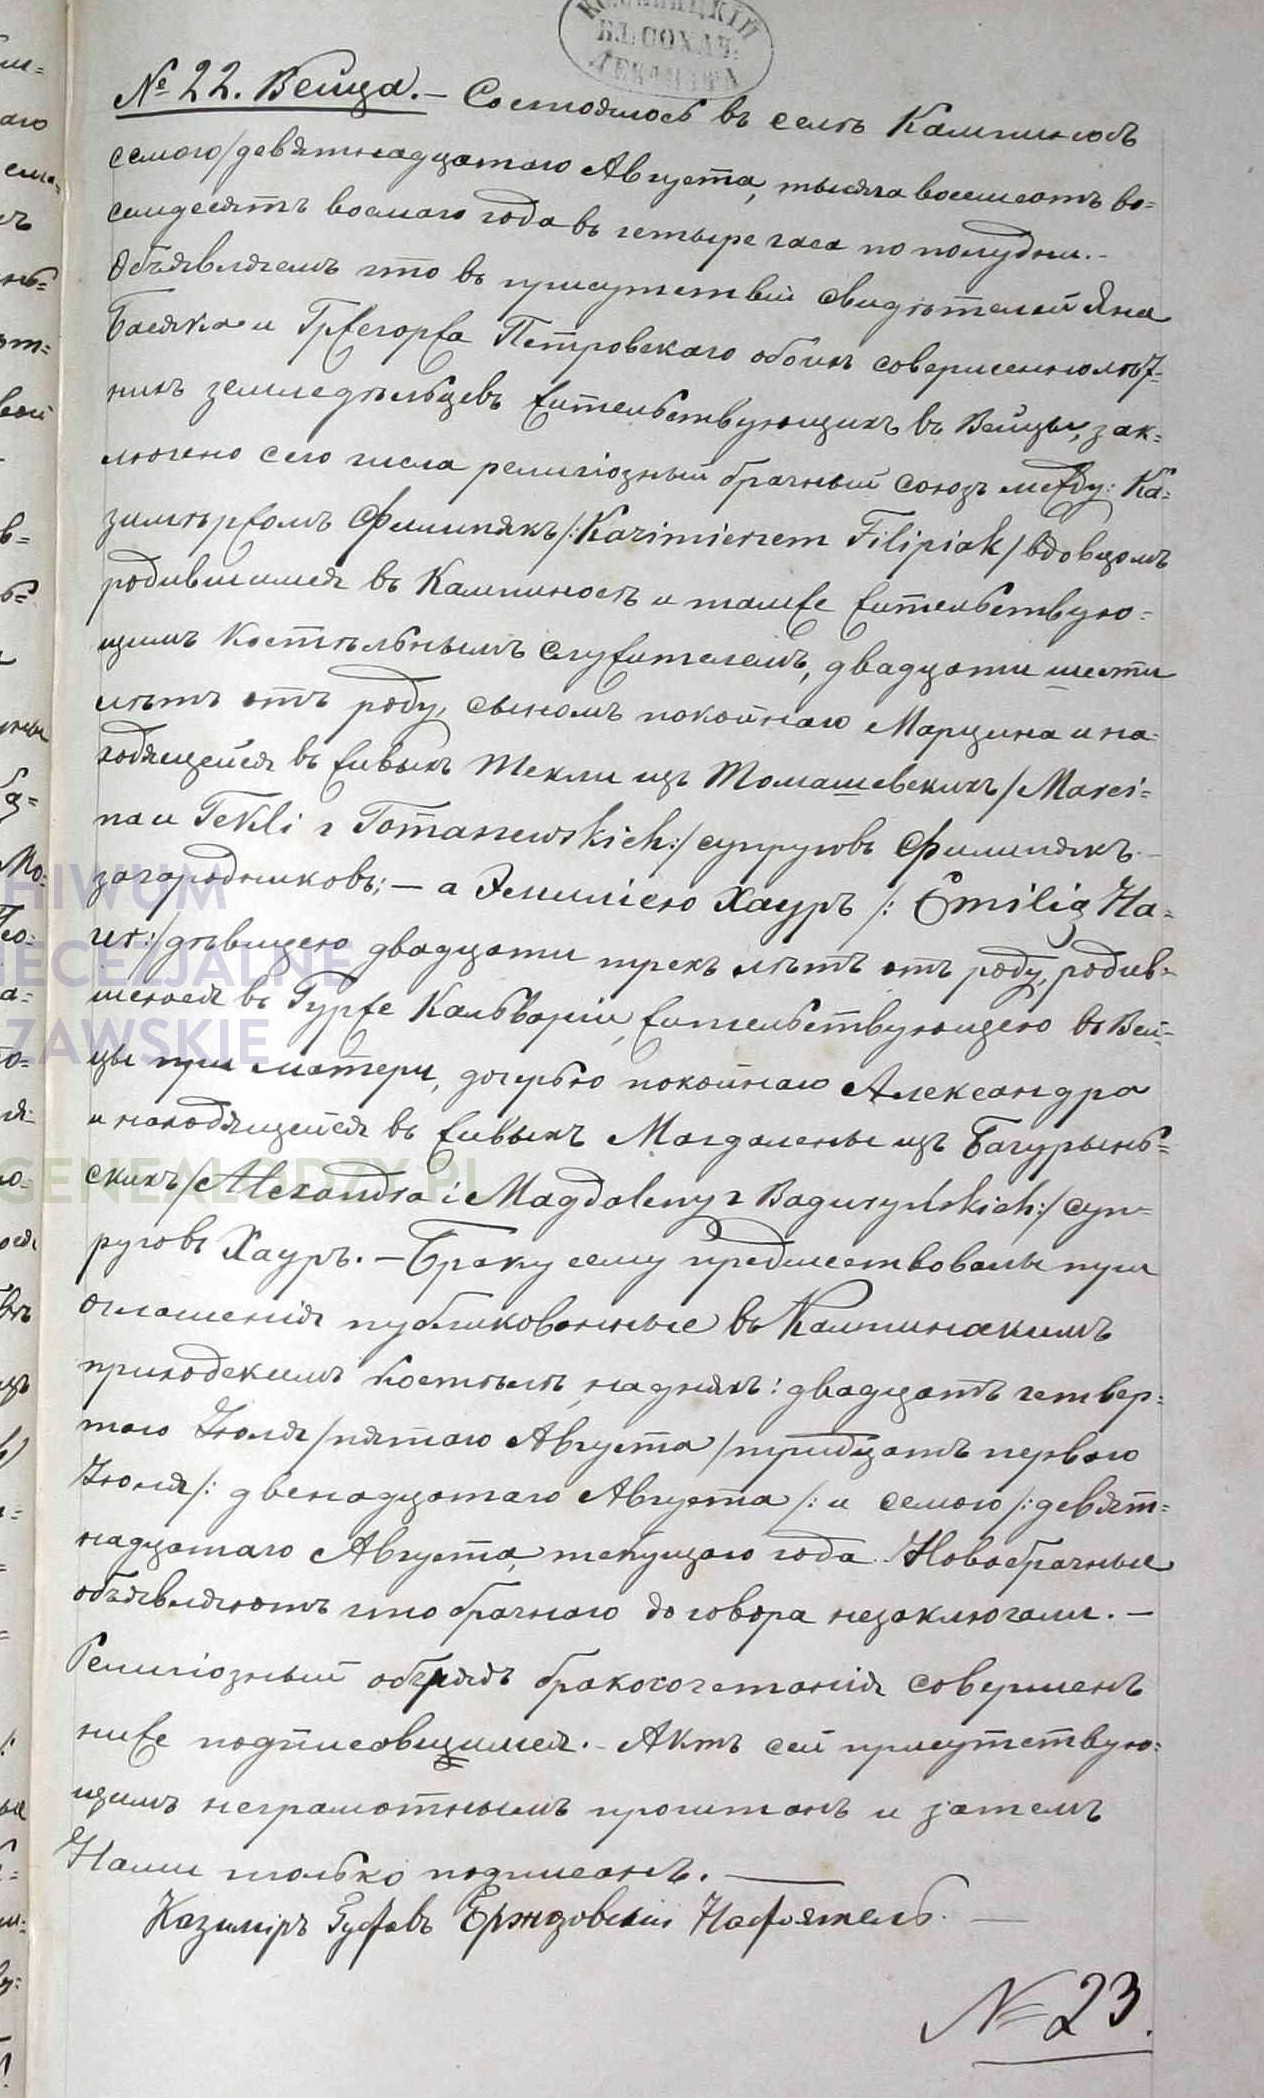 КІЙ
БЛ. СОХАЧ.
ДЕКАНАТА
№ 22. Вейца. — Состоялось въ селѣ Кампиносѣ
семого/девятнадцатаго Августа, тысяча восемсотъ во=
семдесятъ восмаго года въ четыре часа по полудни. -
Объявляемъ что въ присутствіи свидѣтелей Яна
Басяка и Гржегоржа Петровскаго обоихъ совершеннолѣт=
нихъ земледѣльцевъ жительствующихъ въ Вейцы, зак=
лючено сего числа религіозный брачный союзъ между: Ка=
зимѣржомъ Филипякъ/:Kazimierzem Filipiak/вдовцомъ
родившимся въ Кампиносѣ и тамже жительствую=
щимъ Костѣльнымъ служителемъ, двадцати шести
лѣтъ отъ роду, сыномъ покойнаго Марцина и на=
ходящейся въ живыхъ Текли изъ Томашевскихъ/Marci=
na и Tekli z Tomaszewskich:/супруговъ Филипякъ. -
загородниковъ; — а Эмиліею Хауръ /: Emilią Ha=
ur:/дѣвицею двадцати трехъ лѣтъ отъ роду, родив=
шеюся въ Гурже Кальваріи, жительствующею въ Вей=
цы при матери, дочерью покойнаго Александра
и находящейся въ живыхъ Магдалены изъ Багурынь=
скихъ/Alexandra i Magdaleny z Baguryńskich:/суп=
руговъ Хауръ. — Браку сему предшествовалы три
оглашенія публикованные въ Кампинскимъ
приходскимъ Костѣлѣ, на дняхъ: двадцать четвер=
таго Іюля/пятаго Августа/тридцать перваго
Іюля/: двенадцатаго Августа/: и семого/:девят=
надцатаго Августа, текущаго года. Новобрачные
объявляютъ что брачнаго договора незаключали. —
Религіозный обрядъ бракосочетанія совершенъ
ниже подписавщимся. - Актъ сей присутствую=
щимъ неграмотнымъ прочитанъ и затемъ
Нами только подписанъ. —
Казиміръ Ержовскій Настоятель. —
№ 23.
HIWUM
IECEZJALNE
ZAWSKIE
GENEALODZY.PL